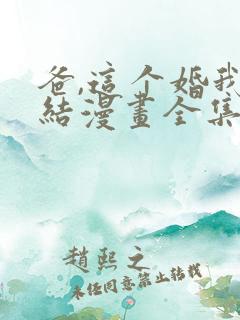 爸,這个婚我
結漫畫全集
趙熙之
未任同意禁止转載